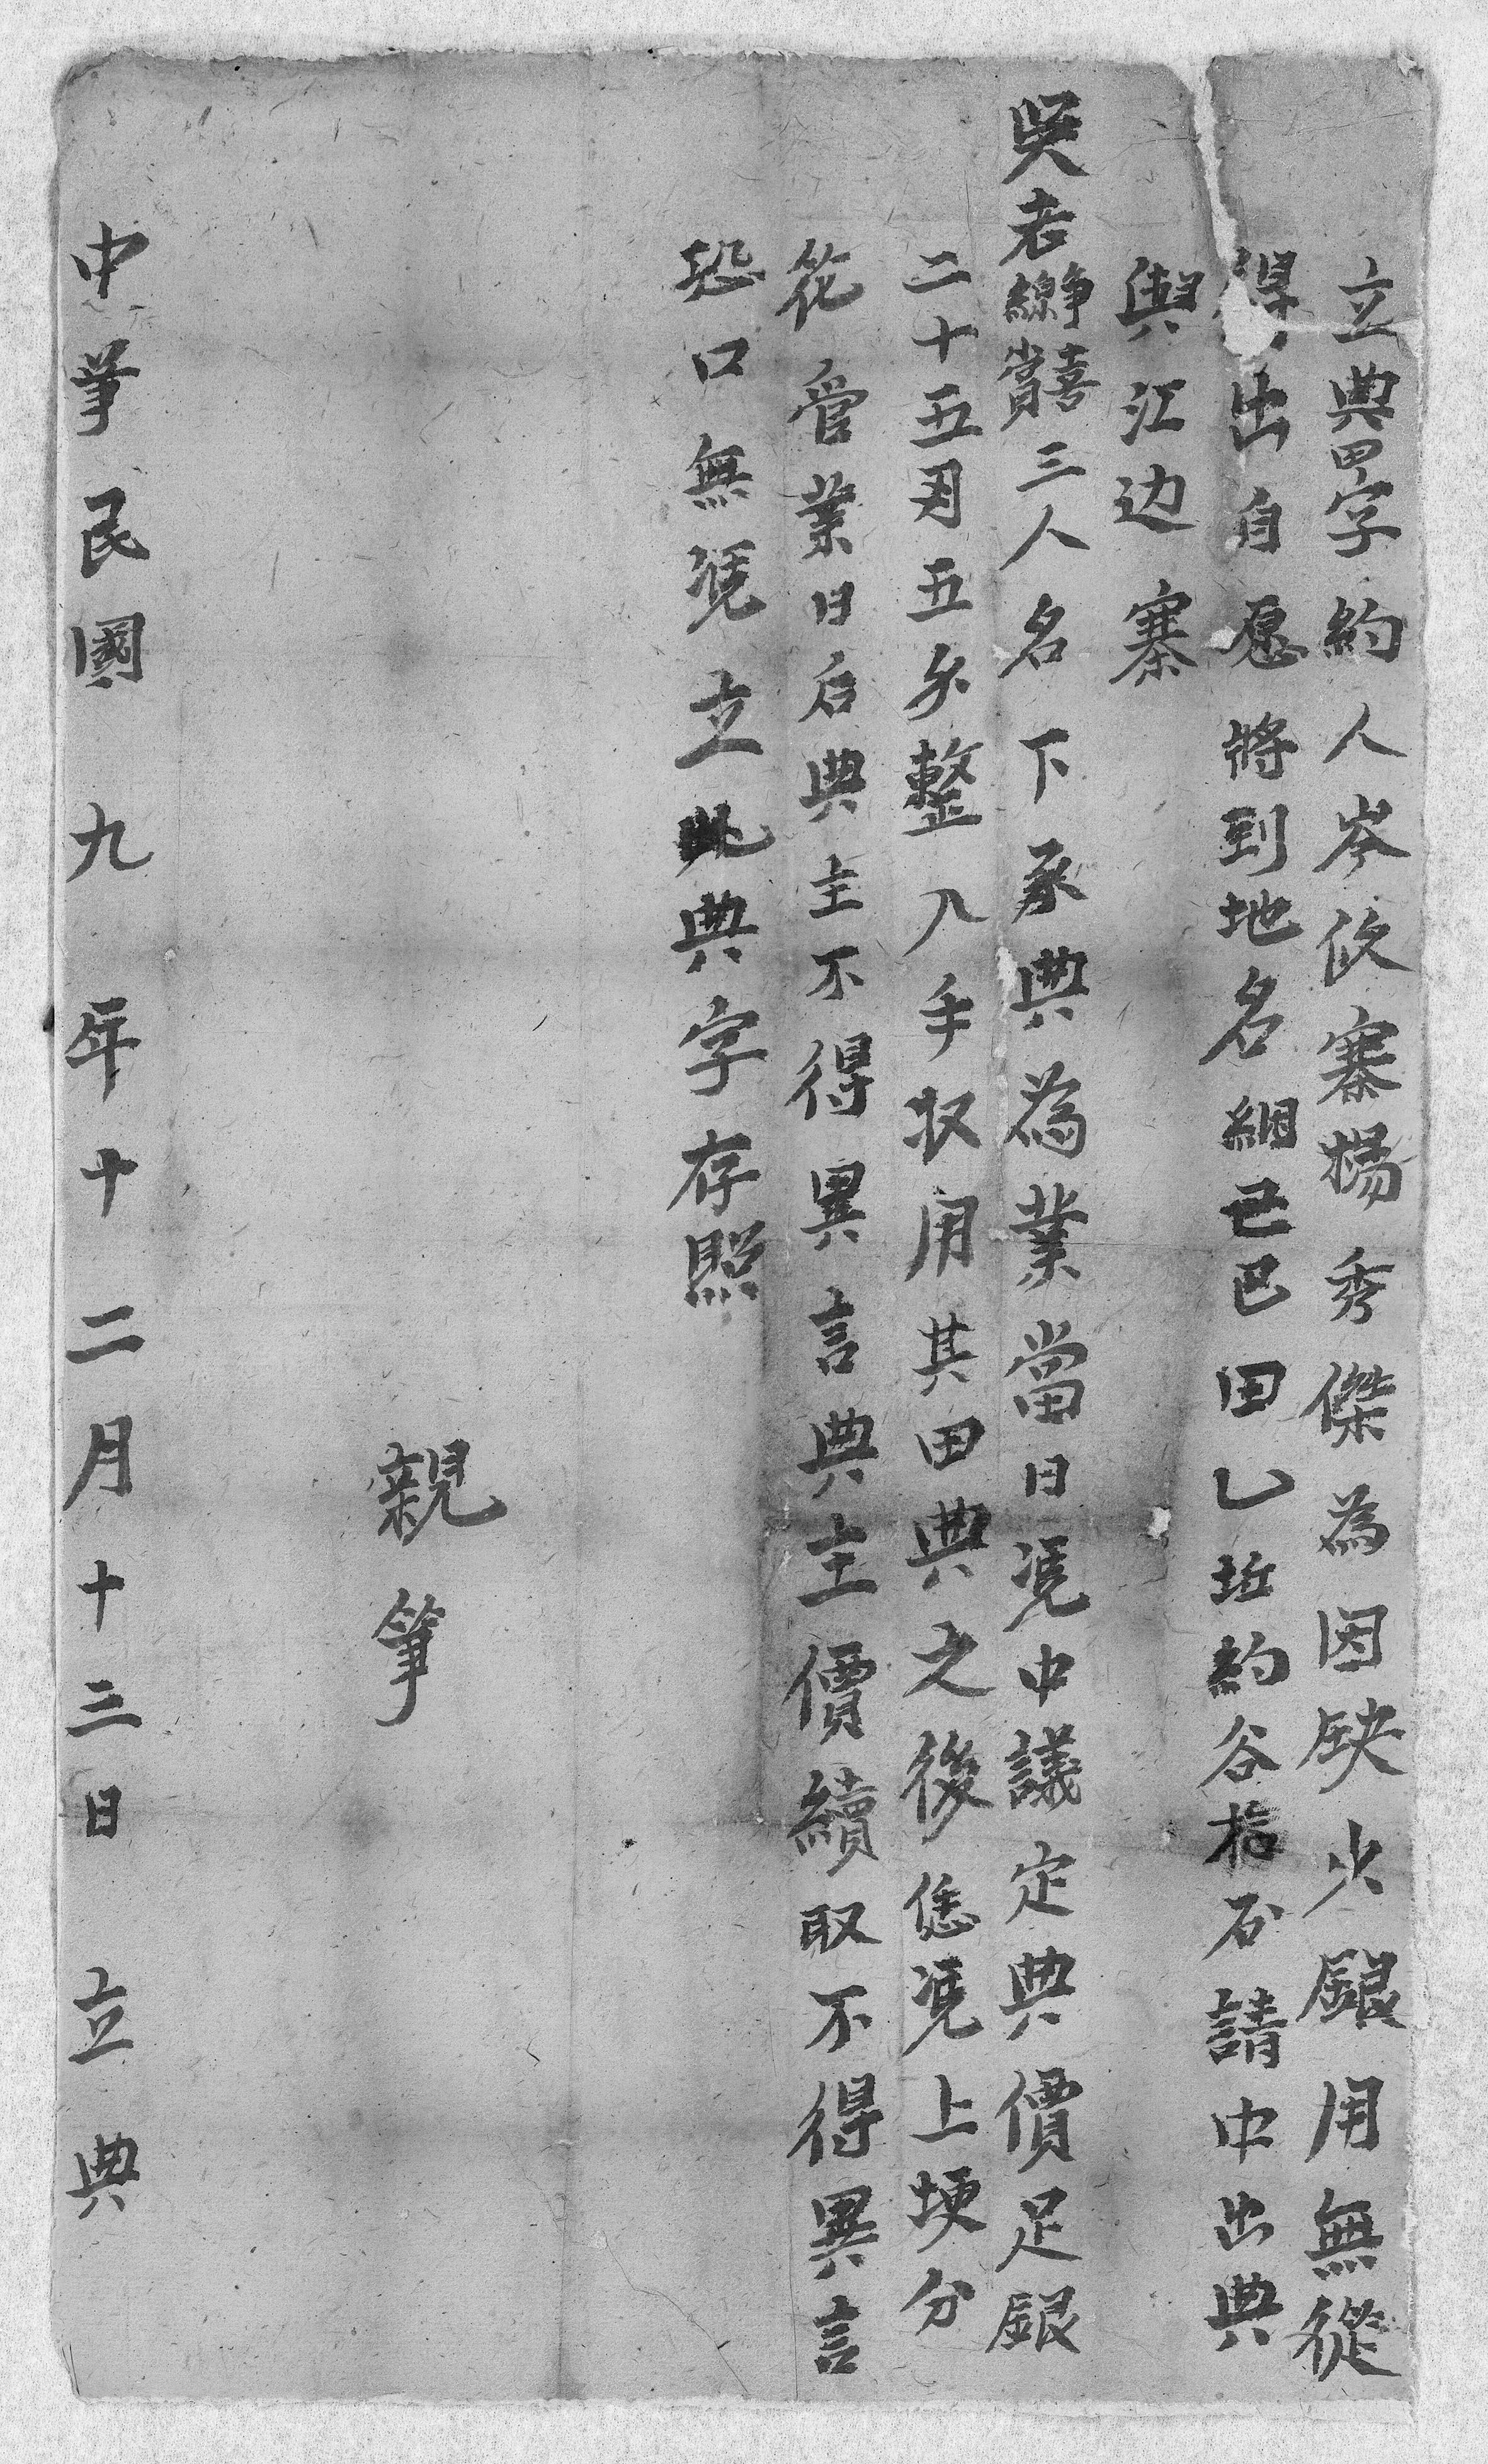 立典田字約人岑伩寨楊秀傑為因缺少銀用無從
得出自愿將到地名細己巴田乚坵約谷拾石請中出典
與江边寨
吳老繲箏賞喜三人名下承典為業當日凴中議定典價足銀
二十五刄五分整入手收用其田典之後恁凴上埂分
花管業日后典主不得異言典主價續取不得異言
恐口無凴立此典字存照
親筆
中華民國九年十二月十三日立典